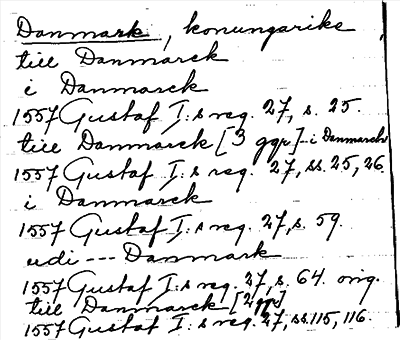 Danmark, konungarike,
till Danmarck
i Danmarck
1557 Gustaf I:s reg. 27, s. 25.
till Danmarck [3 ggr] - i Danmarck
1557 Gustaf I:s reg. 27, ss. 25, 26.
i Danmarck
1557 Gustaf I:s reg. 27, s. 59.
udi --- Danmark
1557 Gustaf I:s reg. 27, s. 64. orig.
till Danmarck [2 ggr]
1557 Gustaf I:s reg. 27, ss. 115, 116.